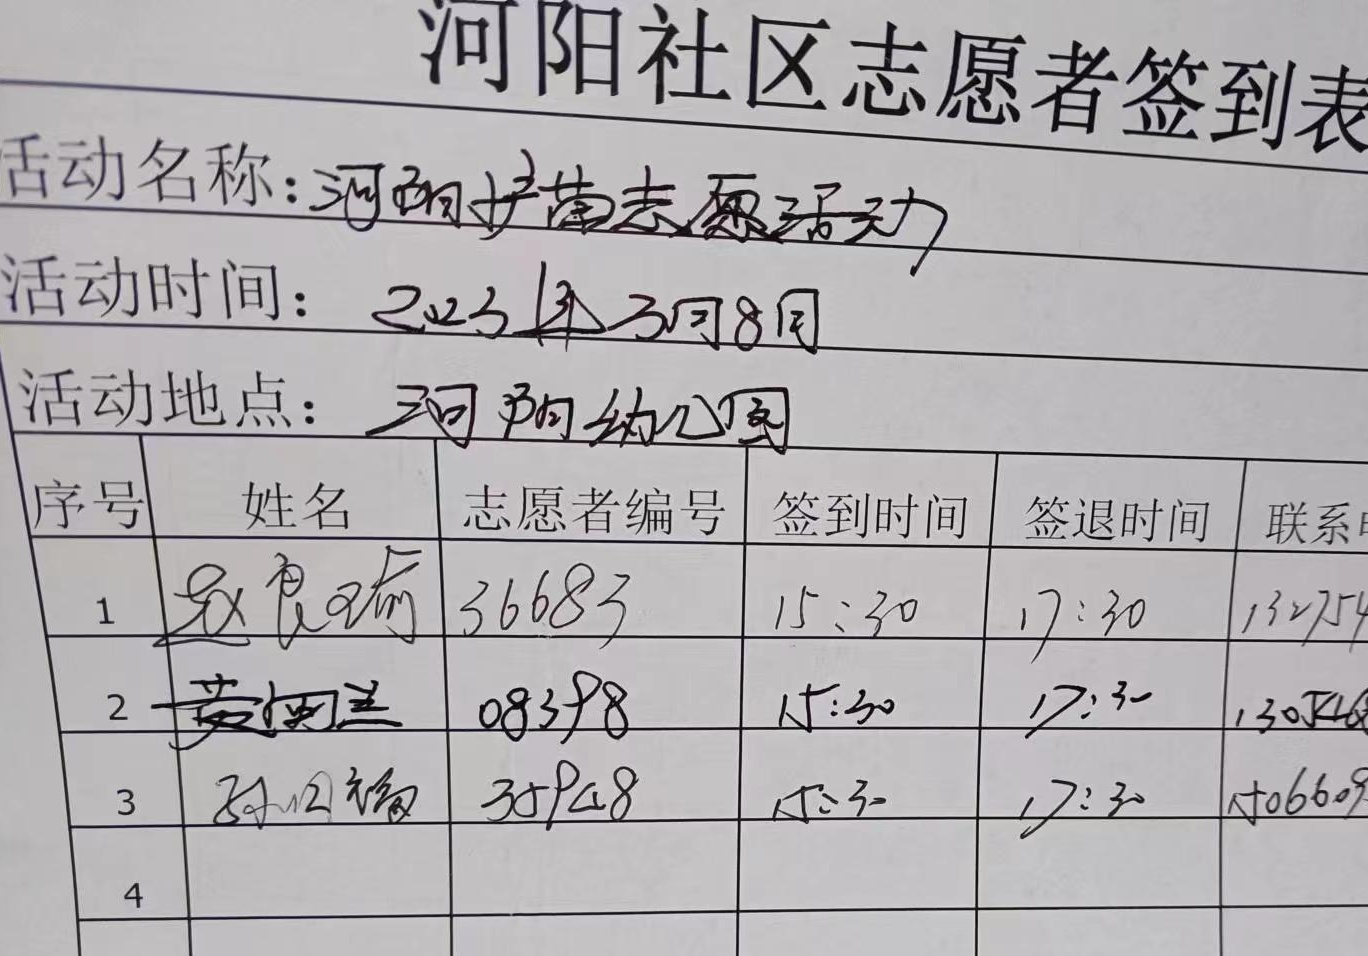 河阳社区志愿者签到表
活动名称：河阳护苗志愿活动
活动时间：2023年3月8日
活动地点：河阳幼儿园
序号 姓名 志愿者编号 签到时间 签退时间 联系
1 赵良瑜 36683 15:30 17:30 132754
2 08398 15:30 17:30 13054
3 35948 15:30 17:30 150660
4